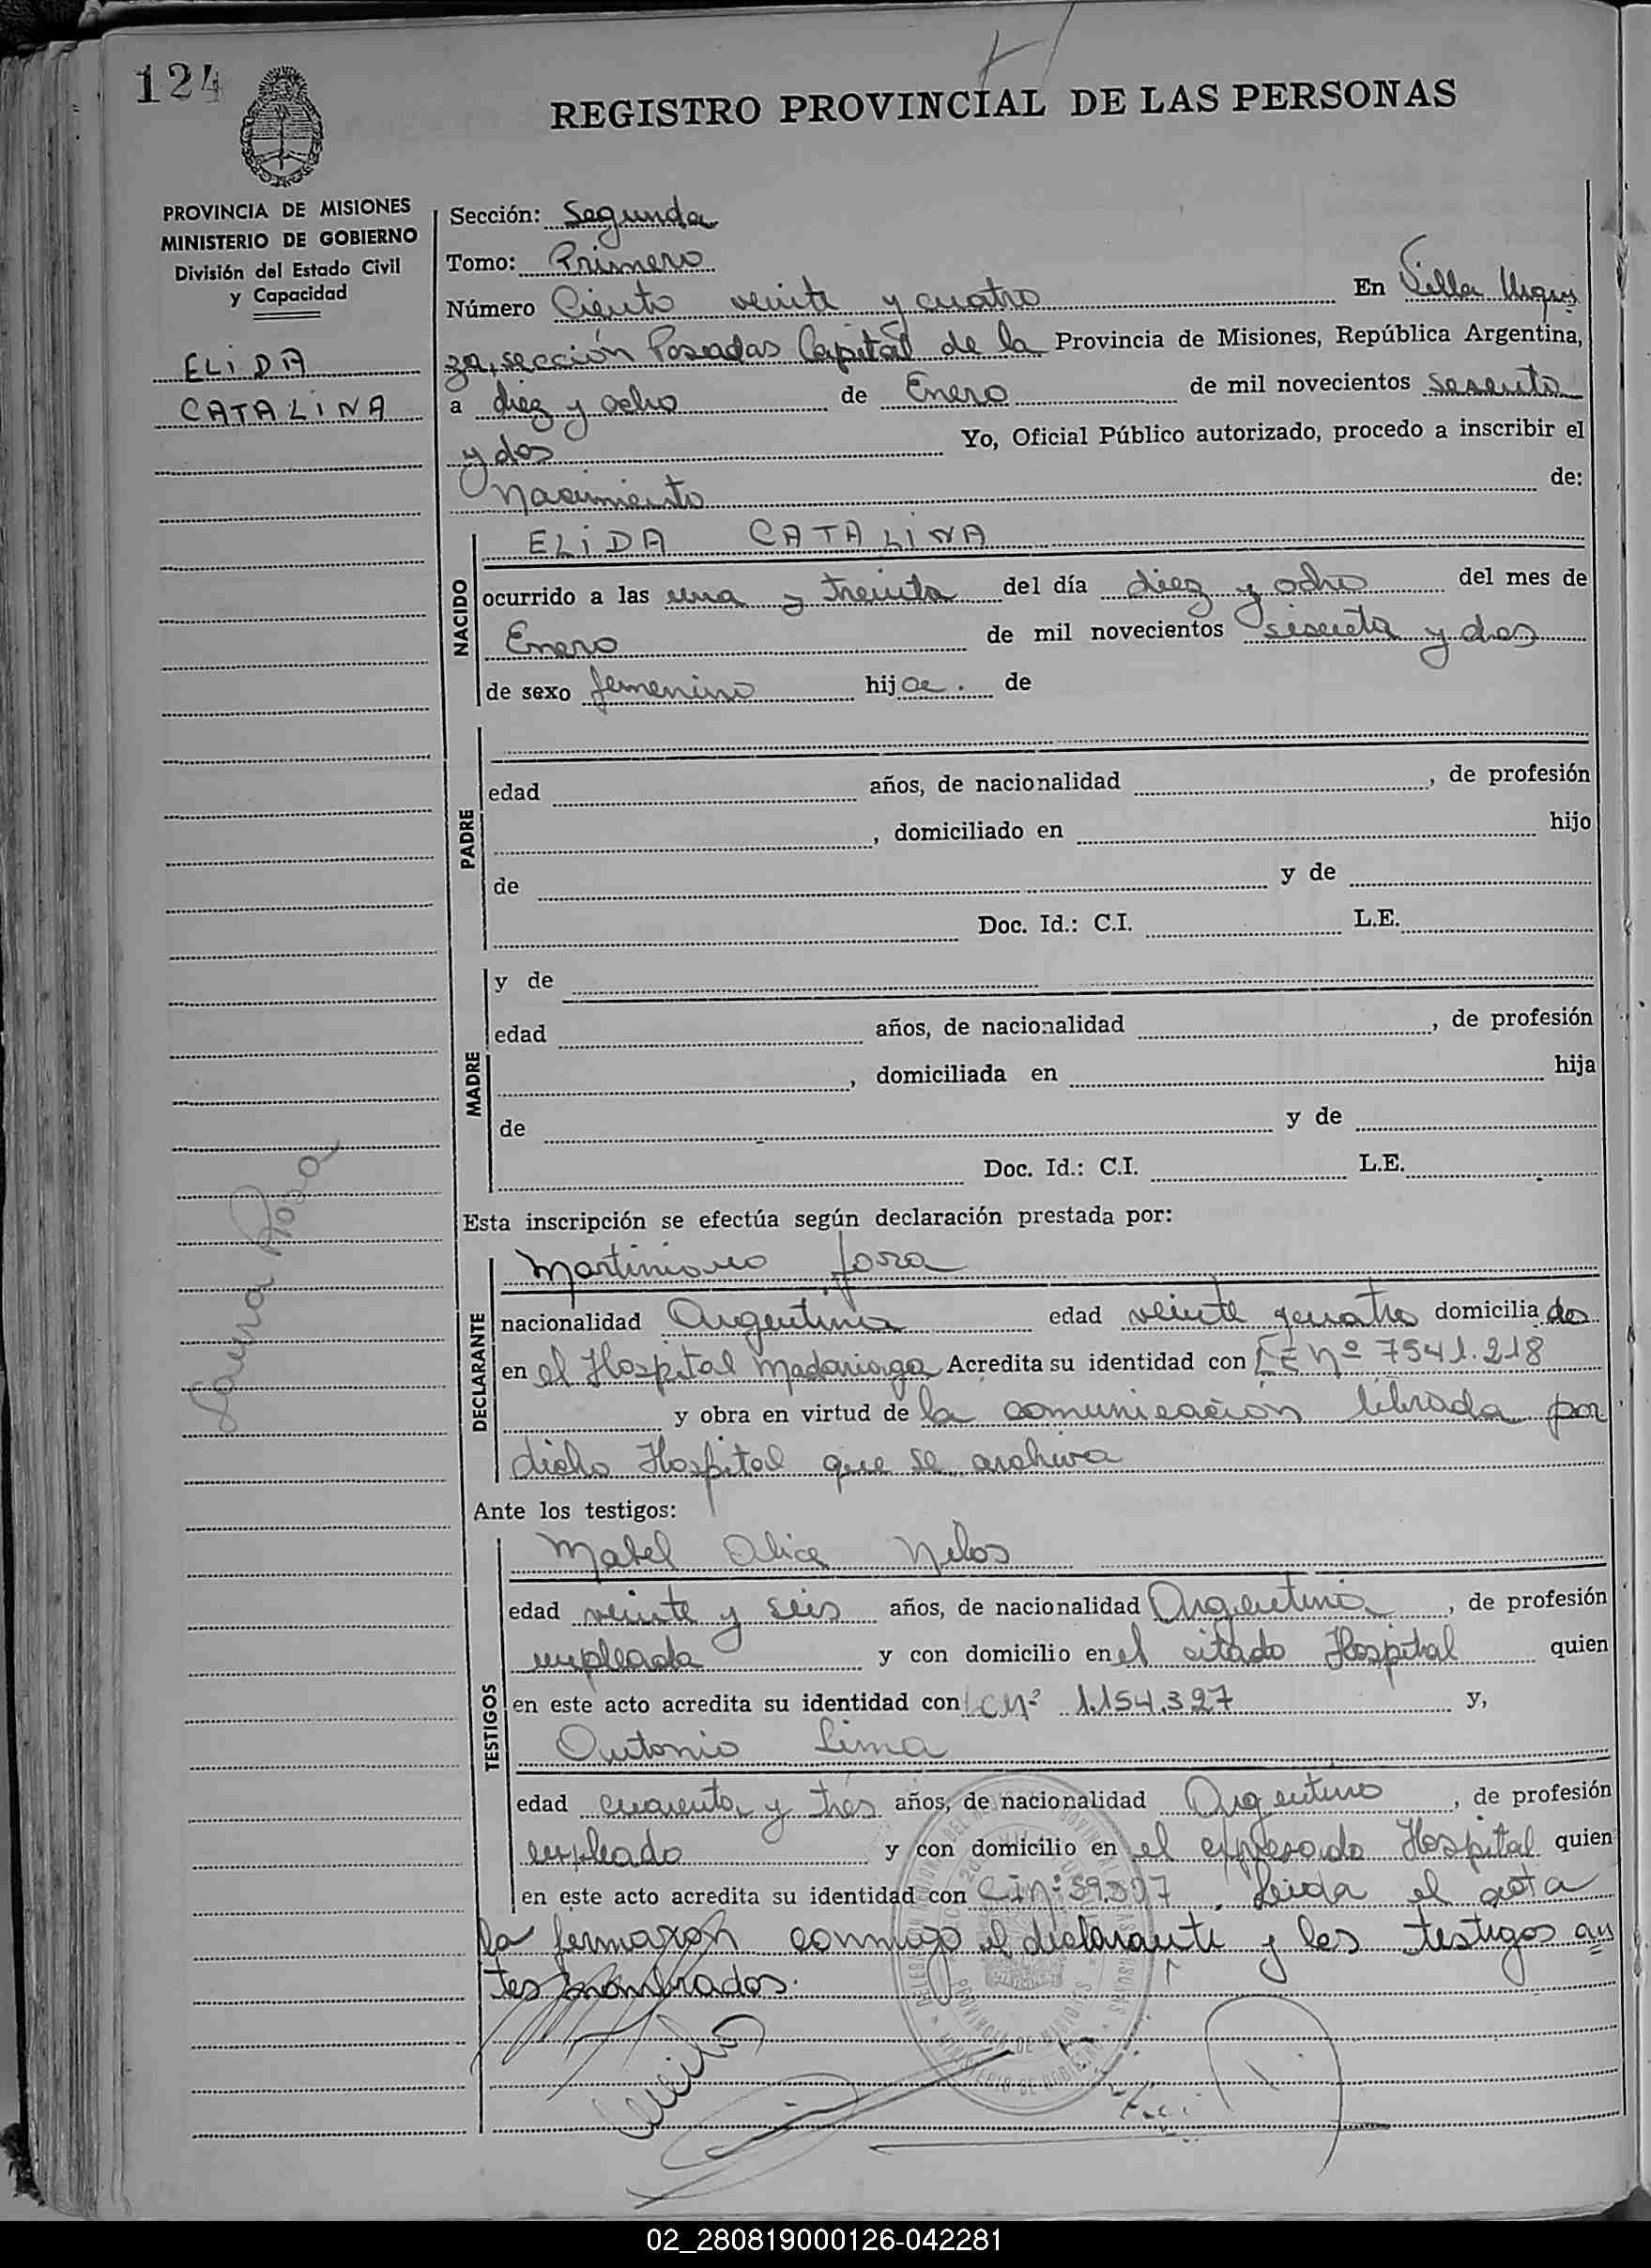 124
REGISTRO PROVINCIAL DE LAS PERSONAS
PROVINCIA DE MISIONES
MINISTERIO DE GOBIERNO
División del Estado Civil
y Capacidad
ELIDA
CATALINA
Sección: Segunda
Tomo: Primero
Número Ciento veinte y cuatro En Villa Urqui
za, sección Posadas Capital de la Provincia de Misiones, República Argentina,
a diez y ocho de Enero de mil novecientos sesenta
y dos Yo, Oficial Público autorizado, procedo a inscribir el
Nacimiento de:
NACIDO
ELIDA CATALINA
ocurrido a las una y treinta del día diez y ocho del mes de
Enero de mil novecientos sesenta y dos
de sexo femenino hija. de
PADRE
edad años, de nacionalidad , de profesión
, domiciliado en hijo
de y de
Doc. Id.: C.I. L.E.
MADRE
y de
edad años, de nacionalidad , de profesión
, domiciliada en hija
de y de
Doc. Id.: C.I. L.E.
Rosa
Esta inscripción se efectúa según declaración prestada por:
DECLARANTE
Martiniano
nacionalidad Argentina edad veinte y cuatro domiciliado
en el Hospital Madariaga Acredita su identidad con LE Nº 7541.218
y obra en virtud de la comunicación librada por
dicho Hospital que se archiva
Ante los testigos:
TESTIGOS
Mabel Alice
edad veinte y seis años, de nacionalidad Argentina, de profesión
empleada y con domicilio en el citado Hospital quien
en este acto acredita su identidad con LC Nº 1.154.327 y,
Antonio Lima
edad cuarenta y tres años, de nacionalidad Argentino, de profesión
empleado y con domicilio en el expresado Hospital quien
en este acto acredita su identidad con C.I nº Leida el acta
la firmaron conmigo el declarante y los testigos an
tes nombrados.
PROVINCIA DE MISIONES
MINISTERIO DE GOBIERNO
02_280819000126-042281